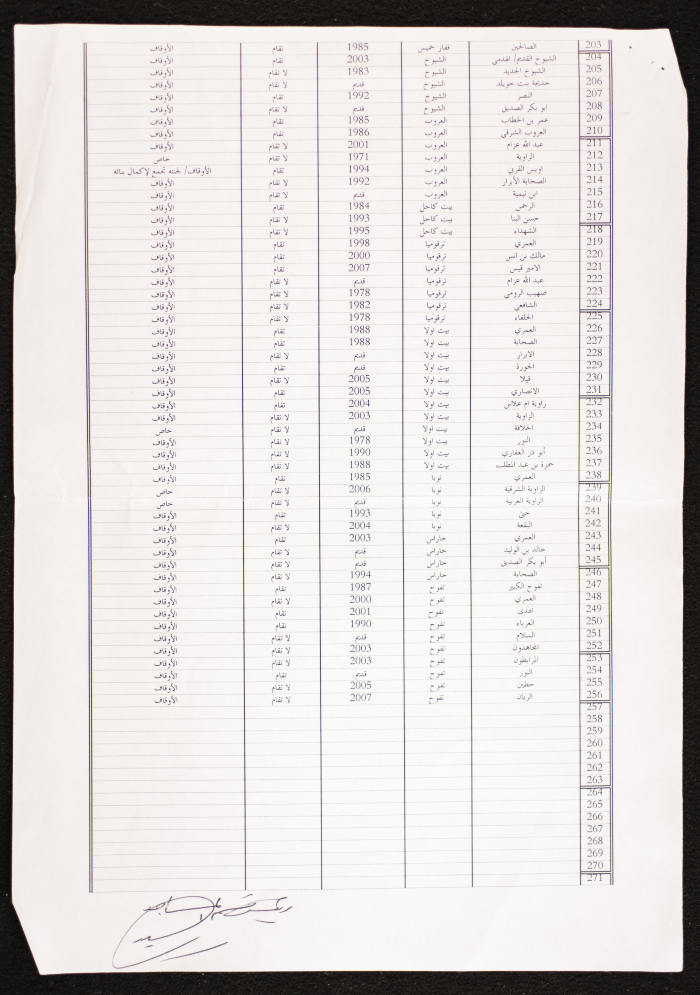 203 الصالحين قفاز خميس 1985 تقام الأوقاف
204 الشيوخ القديم/ الشيوخ 2003 تقام الأوقاف
205 الشيوخ الجديد الشيوخ 1983 لا تقام الأوقاف
206 خديجة بنت خويلد الشيوخ قديم لا تقام الأوقاف
207 النصر الشيوخ 1992 تقام الأوقاف
208 ابو بكر الصديق الشيوخ قديم لا تقام الأوقاف
209 عمر بن الخطاب العروب 1985 تقام الأوقاف
210 العروب الشرقي العروب 1986 تقام الأوقاف
211 عبد الله عزام العروب 2001 لا تقام الأوقاف
212 الزاوية العروب 1971 لا تقام خاص
213 اويس القرني العروب 1994 تقام الأوقاف/ لجنته تجمع لإكمال بنائه
214 الصحابة الأبرار العروب 1992 لا تقام الأوقاف
215 ابن تيمية العروب قديم لا تقام الأوقاف
216 الرحمن بيت كاحل 1984 تقام الأوقاف
217 حسن البنا بيت كاحل 1993 لا تقام الأوقاف
218 الشهداء بيت كاحل 1995 لا تقام الأوقاف
219 العمري ترقوميا 1998 تقام الأوقاف
220 مالك بن انس ترقوميا 2000 تقام الأوقاف
221 الامير قيس ترقوميا 2007 تقام الأوقاف
222 عبد الله عزام ترقوميا قديم لا تقام الأوقاف
223 صهيب الرومي ترقوميا 1978 لا تقام الأوقاف
224 الشافعي ترقوميا 1982 تقام الأوقاف
225 الخلفاء ترقوميا 1978 لا تقام الأوقاف
226 العمري بيت اولا 1988 تقام الأوقاف
227 الصحابة بيت اولا 1988 تقام الأوقاف
228 الابرار بيت اولا قديم لا تقام الأوقاف
229 الجورة بيت اولا قديم تقام الأوقاف
230 قيلا بيت اولا 2005 لا تقام الأوقاف
231 الانصاري بيت اولا 2005 تقام الأوقاف
232 زاوية ام علاس بيت اولا 2004 تقام الأوقاف
233 الزاوية بيت اولا 2003 لا تقام الأوقاف
234 الخلافة بيت اولا قديم لا تقام خاص
235 النور بيت اولا 1978 لا تقام الأوقاف
236 أبو ذر الغفاري بيت اولا 1990 لا تقام الأوقاف
237 حمزة بن عبد المطلب بيت اولا 1988 لا تقام الأوقاف
238 العمري نوبا 1985 تقام الأوقاف
239 الزاوية الشرقية نوبا 2006 لا تقام خاص
240 الزاوية الغربية نوبا قديم لا تقام خاص
241 نوبا 1993 تقام الأوقاف
242 البقعة نوبا 2004 لا تقام الأوقاف
243 العمري خاراس 2003 تقام الأوقاف
244 خالد بن الوليد خاراس قديم لا تقام الأوقاف
245 أبو بكر الصديق خاراس قديم لا تقام الأوقاف
246 الصحابة خاراس 1994 لا تقام الأوقاف
247 تفوح الكبير تفوح 1987 تقام الأوقاف
248 العمري تفوح 2000 لا تقام الأوقاف
249 الهدى تفوح 2001 تقام الأوقاف
250 الغرباء تفوح 1990 تقام الأوقاف
251 السلام تفوح قديم لا تقام الأوقاف
252 المجاهدون تفوح 2003 لا تقام الأوقاف
253 المرابطون تفوح 2003 لا تقام الأوقاف
254 النور تفوح قديم تقام الأوقاف
255 حطين تفوح 2005 لا تقام الأوقاف
256 الريان تفوح 2007 لا تقام الأوقاف
257
258
259
260
261
262
263
264
265
266
267
268
269
270
271
رئيس قسم المساجد